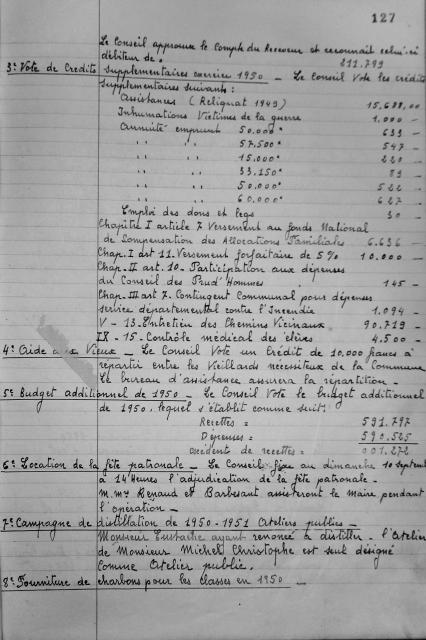 127
Le Conseil approuve le Compte du Receveur et reconnait celui-ci
débiteur de. 211.799
3: Vote de Credits supplementaires exercice 1950 _ Le Conseil Vote les crédits
supplementaires suivants:
Assistances (Reliquat 1949) 15.688,00
Inhumations Victimes de la guerre 1.000 -
Annuité emprunt 50.000 633 -
" " 57.500 547 -
" " 15.000 220 -
" " 33.150 89 -
" " 50.000 522 -
" " 60.000 627 -
Emploi des dons et legs 30 -
Chapitre I article 7 Versement au fonds National
de Compensation des Allocations Familiales 6.636 -
Chap. I art 11. Versement forfaitaire de 5% 10.000 -
Chap. II art. 10 - Participation aux dépenses
du Conseil des Prud'Hommes 145 -
Chap. III art 7. Contingent Communal pour dépenses
service départemental contre l'Incendie 1.094 -
V - 13. Entretien des Chemins Vicinaux 90.719 -
IX - 15 - Contrôle médical des élèves 4.500 -
4: Aide aux Vieux _ Le Conseil Vote un Crédit de 10.000 francs à
répartir entre les Vieillards nécessiteux de la Commune
Le bureau d'assistance assurera la répartition _
5: Budget additionnel de 1950 _ Le Conseil Vote le budget additionnel
de 1950, lequel s'établit comme suit:
Recettes = 591.797
Dépenses = 590.525
excédent de recettes = 001.272
6: Location de la fête patronale _ Le Conseil fixe au dimanche 10 Septemb
à 14 Heures l'adjudication de la fête patronale -
M.mrs Renaud et Barbesant assisteront le Maire pendant
l'opération _
7: Campagne de distillation de 1950-1951 Ateliers publics _
Monsieur Eustache ayant renoncé à distiller - l'Atelier
de Monsieur Michel Christophe est seul désigné
comme Atelier public.
8: Fourniture de charbons pour les classes en 1950 _